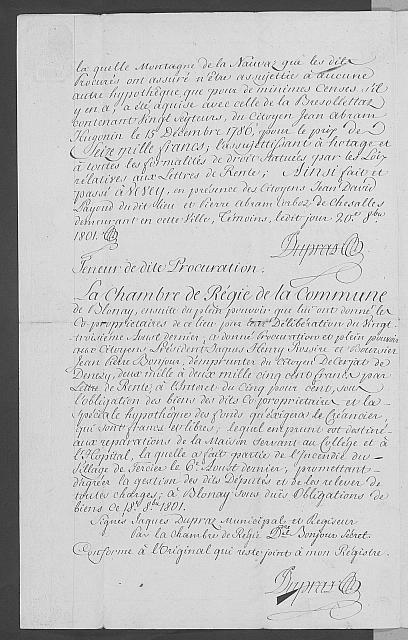 la quelle Montagne de la Nauvaz que les dits
Procurés ont assuré n'être assujettie à aucune
autre hypothèque que pour de minimes Censes s'il
y en a, a été aquise avec celle de la Bresollettaz
contenant Vingt Seyteurs, du Citoyen Jean Abram
Hugonin le 15e Décembre 1786, pour le prix de
Seize mille francs; l'assujettissant à hotage et
à toutes les formalités de droit Statués par les Loix
relatives aux Lettres de Rente; Ainsi fait et
passé à Vevey, en présence des Citoyens Jean David
dudit lieu et Pierre Abram de Chesalles
demeurant en cette Ville, Témoins, ledit jour 20e 8bre
1801.
Dupraz
Teneur de dite Procuration.
La Chambre de Régie de la Commune
de Blonay, ensuite du plein pouvoir que lui ont donné les
Co-propriétaires de ce lieu par Délibération du Vingt-
troisième Aoust dernier, a donné procuration et plein pouvoir
aux Citoyens Président Jaques Henry et Boursier
Jean Pierre Bonjour, d'emprunter du Citoyen De Cerjat de
Denezy, deux mille à deux mille cinq cent francs par
Lettre de Rente, à l'interet du Cinq pour cent, sous
l'Obligation des biens des dits Co-propriétaires et la
Spéciale hypothèque des fonds qu'éxigera le Créancier,
qui sont francs et libres; lequel emprunt est destiné
aux réparations de la Maison servant au Collége et à
l'Hôpital, la quelle a fait partie de l'Incendie du
Village de Tercier le 6e Aoust dernier, promettant
d'agréer la gestion des dits Députés et de les relever de
toutes charges; à Blonay sous dues Obligations de
biens ce 18e 8bre 1801.
Signés Jaques Dupraz Municipal et Régisseur
Par la Chambre de Régie Bonjour Sécret.
Conforme à l'Original qui reste joint à mon Régistre.
Dupraz